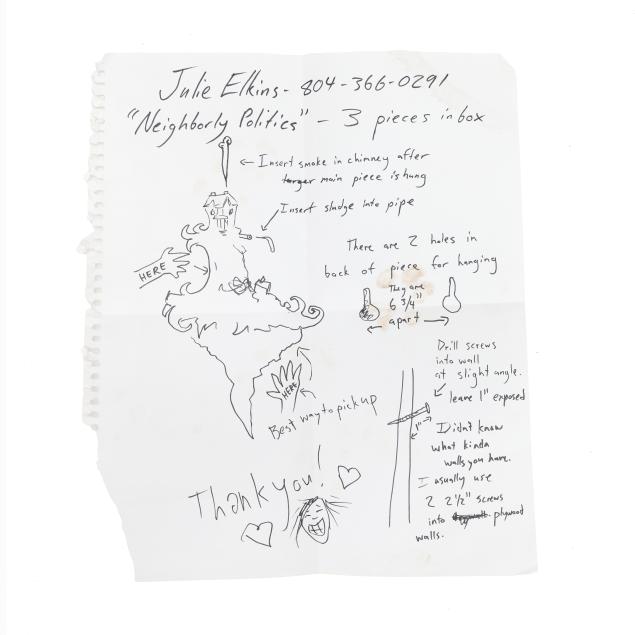 Julie Elkins - 804-366-0291
"Neighborly Politics" - 3 pieces in box
← Insert smoke in chimney after
main piece is hung
Insert sludge into pipe
HERE
There are 2 holes in
back of piece for hanging
They are
6 3/4"
apart
HERE
Best way to pick up
Drill screws
into wall
at slight angle.
leave 1" exposed
1"
I didn't know
what kinda
walls you have.
I usually use
2 2 1/2" screws
into plywood
walls.
Thank you!